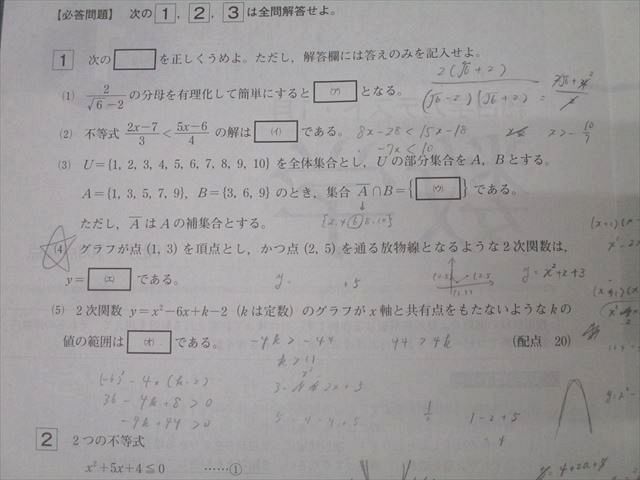 【必答問題】 次の 1, 2, 3 は全問解答せよ。
1 次の□を正しくうめよ。ただし，解答欄には答えのみを記入せよ。
2(√6+2)
(1) 2/(√6−2) の分母を有理化して簡単にすると (ア) となる。
(√6−2)(√6+2) =
(2) 不等式 (2x−7)/3 < (5x−6)/4 の解は (イ) である。 8x−28<15x−18 x>−10/7
−7x<10
(3) U={1, 2, 3, 4, 5, 6, 7, 8, 9, 10} を全体集合とし，U の部分集合を A，B とする。
A={1, 3, 5, 7, 9}，B={3, 6, 9} のとき，集合 A̅∩B={ (ウ) } である。
↓
ただし，A̅ は A の補集合とする。 {2.4.6.8.10}
(4) グラフが点 (1, 3) を頂点とし，かつ点 (2, 5) を通る放物線となるような2次関数は，
y= (エ) である。 y= +5 y=x²+x+3
(5) 2次関数 y=x²−6x+k−2 (k は定数) のグラフが x 軸と共有点をもたないような k の
値の範囲は (オ) である。 −4k>−44 44>4k (配点 20)
k>11
36−4k+8>0
−4k+44>0
1−2+5
2 2つの不等式
x²+5x+4≦0 ……①